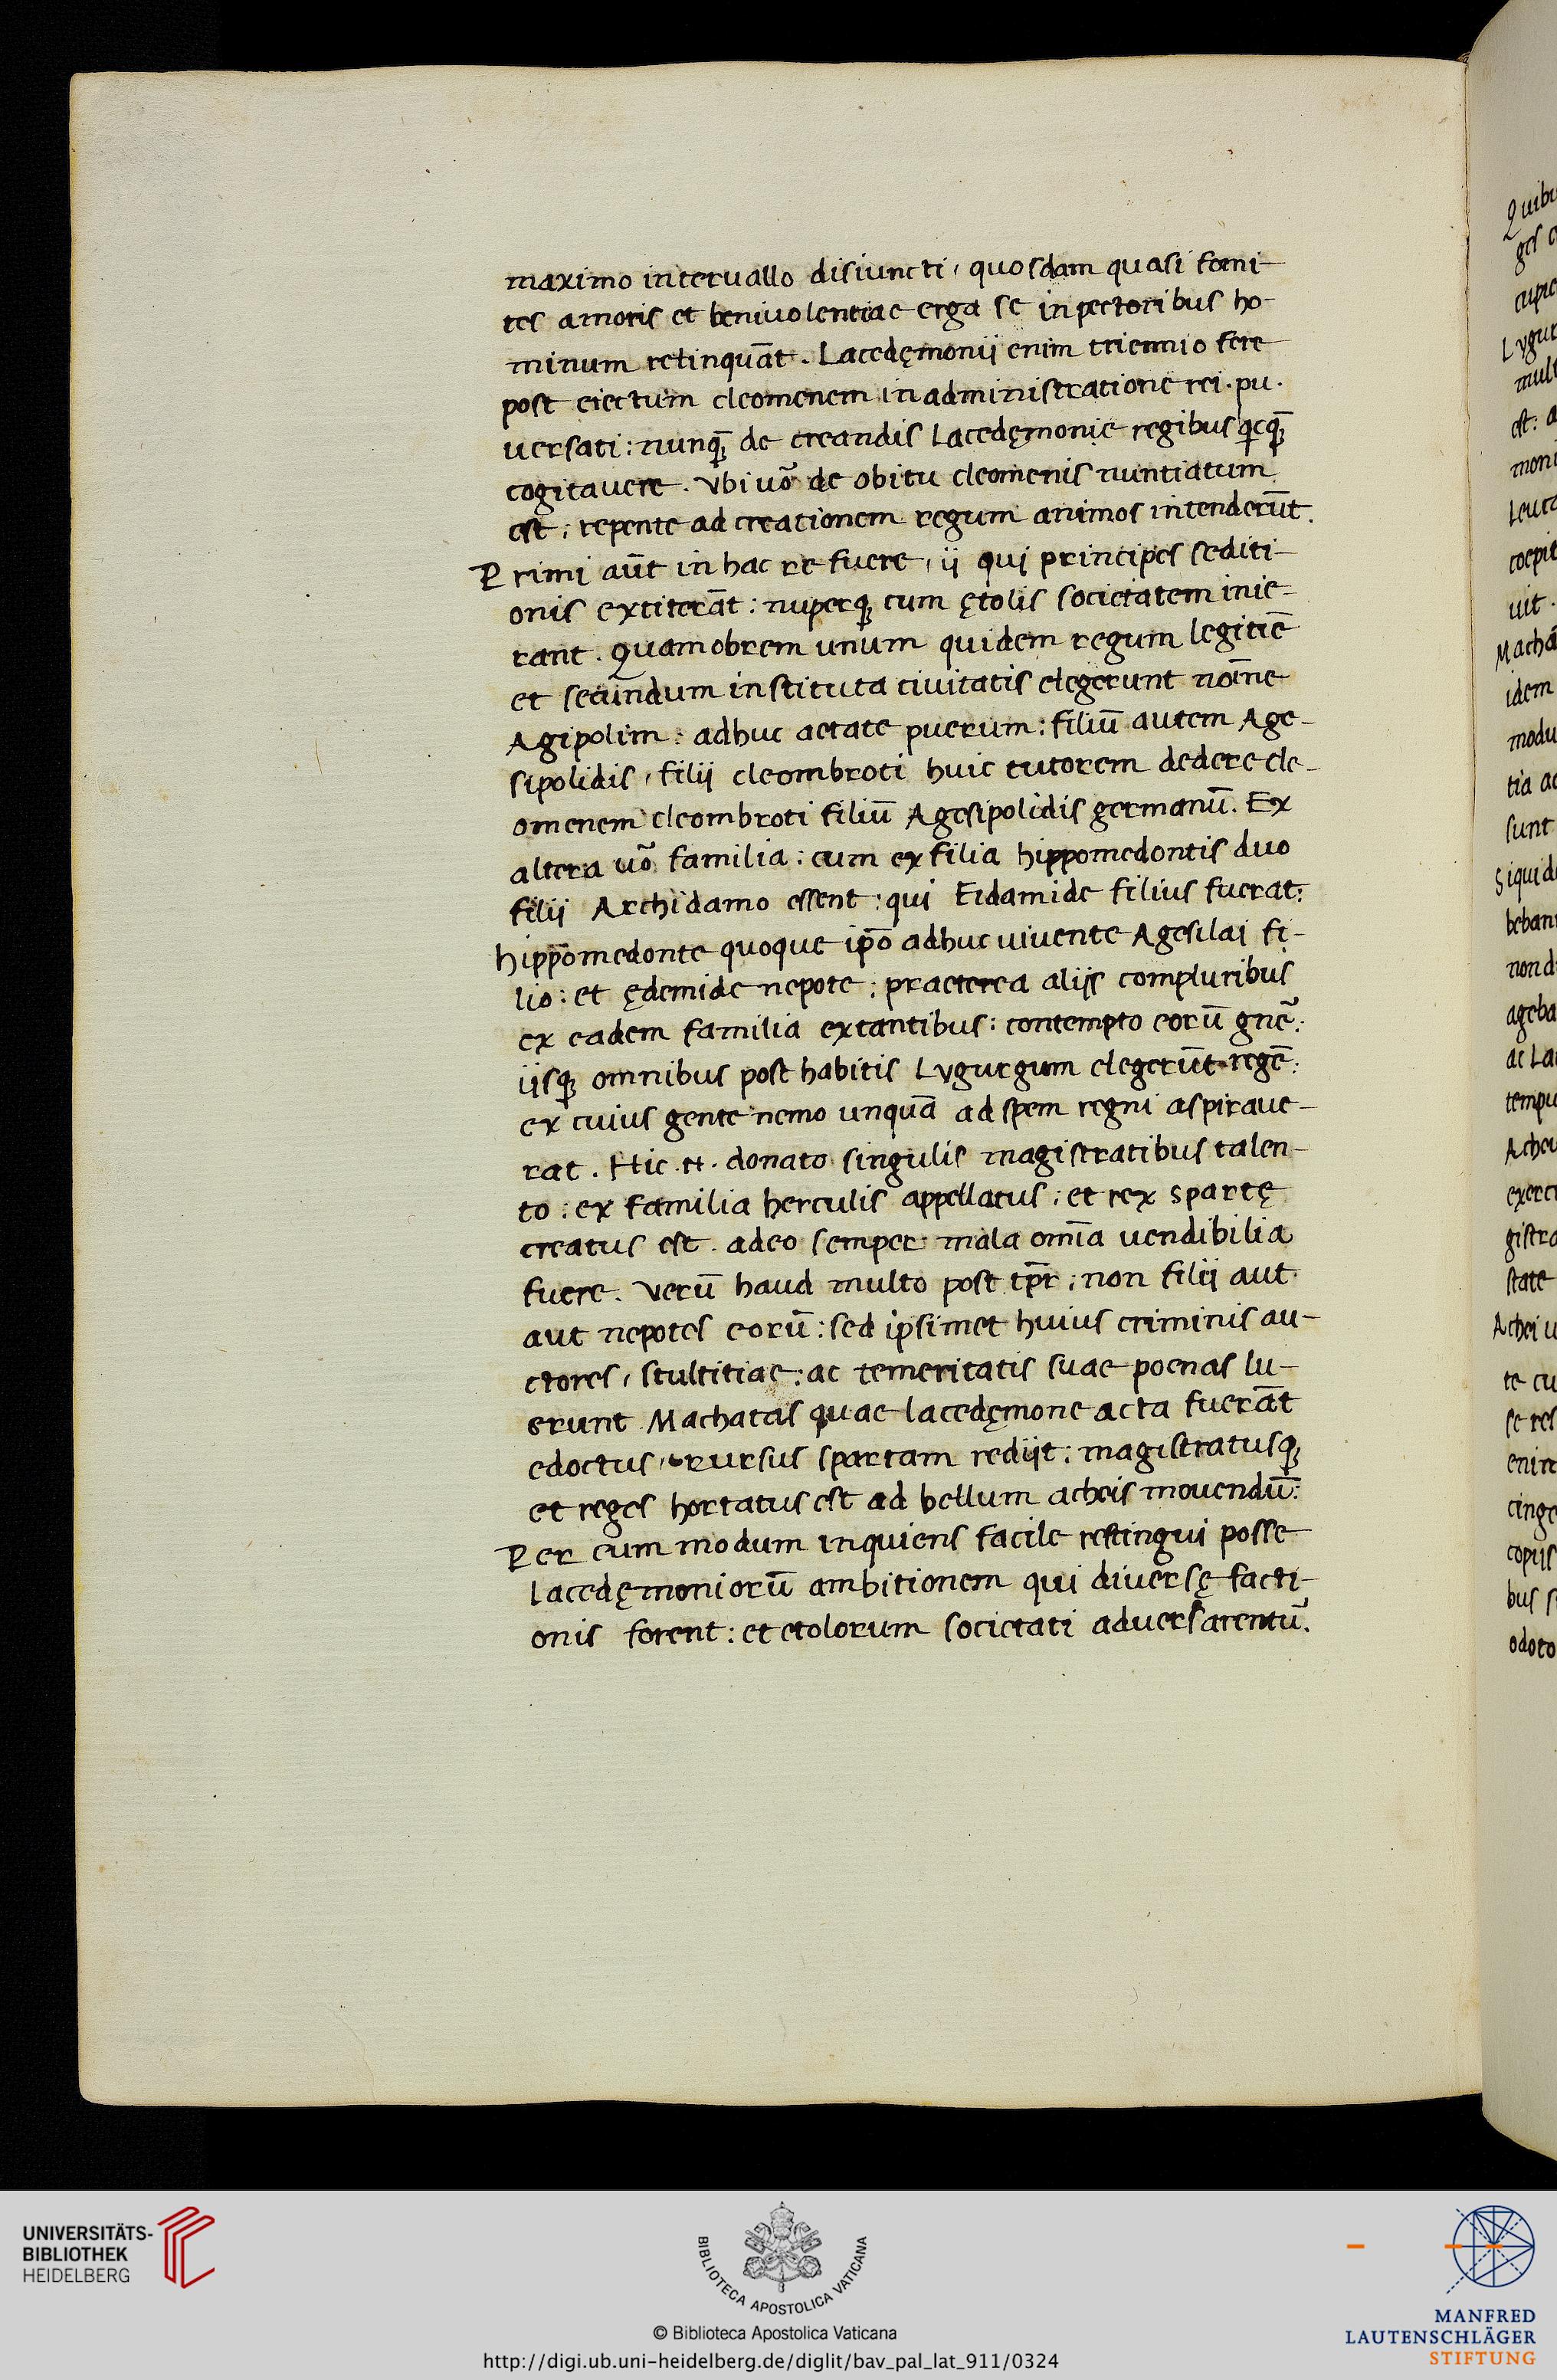 maximo interuallo disiuncti, quosdam quasi fomi-
tes amoris et beniuolentiae erga se in pectoribus ho-
minum relinquāt. Lacedęmonii enim triennio fere
post eiectum cleomenem in administratione rei. pu.
uersati: nunꝗ̄ de creandis Lacedęmonie regibus
cogitauere. Vbi uō de obitu cleomenis nuntiatum
est: repente ad creationem regum animos intenderūt.
Primi aūt in hac re fuere, ii qui principes sediti-
onis extiterāt: nuperq; cum ętolis societatem inie-
rant. Quamobrem unum quidem regum legitiē
et secundum instituta ciuitatis elegerunt noīne
Agipolim: adhuc aetate puerum: filiū autem Age-
sipolidis, filii cleombroti huic tutorem dedere cle-
omenem cleombroti filiū Agesipolidis germanū. Ex
altera uō familia: cum ex filia hippomedontis duo
filii Archidamo essent: qui Eidamide filius fuerat:
hippomedonte quoque ipō adhuc uiuente Agesilai fi-
lio: et ędemide nepote: praeterea aliis compluribus
ex eadem familia extantibus: contempto eorū gnē:
iisq; omnibus post habitis Lygurgum elegerūt regē:
ex cuius gente nemo unquā ad spem regni aspiraue-
rat. Hic .N. donato singulis magistratibus talen-
to: ex familia herculis appellatus: et rex spartę
creatus est. adeo semper mala omīa uendibilia
fuere. Verū haud multo post tp̄r: non filii aut
aut nepotes eorū: sed ipsimet huius criminis au-
ctores, stultitiae: ac temeritatis suae poenas lu-
erunt Machatas quae lacedęmone acta fuerāt
edoctus, rursus spartam rediit: magistratusq;
et reges hortatus est ad bellum acheis mouendū:
Per eum modum inquiens facile restingui posse
lacedęmoniorū ambitionem qui diuersę facti-
onis forent: et etolorum societati aduersarentū.
Quibu
ges c
cupie
Lygur
mult
est: a
moni
Leuca
coepit
uit.
Machā
idem
modu
tia ac
sunt
Siquid
beban
non d
ageba
ac La
tempu
Acheu
exerci
gistra
state
Achei u
te cu
se res
enim
cinge
copiis
bus s
odoto
UNIVERSITÄTS-
BIBLIOTHEK
HEIDELBERG
BIBLIOTECA APOSTOLICA VATICANA
© Biblioteca Apostolica Vaticana
http://digi.ub.uni-heidelberg.de/diglit/bav_pal_lat_911/0324
MANFRED
LAUTENSCHLÄGER
STIFTUNG